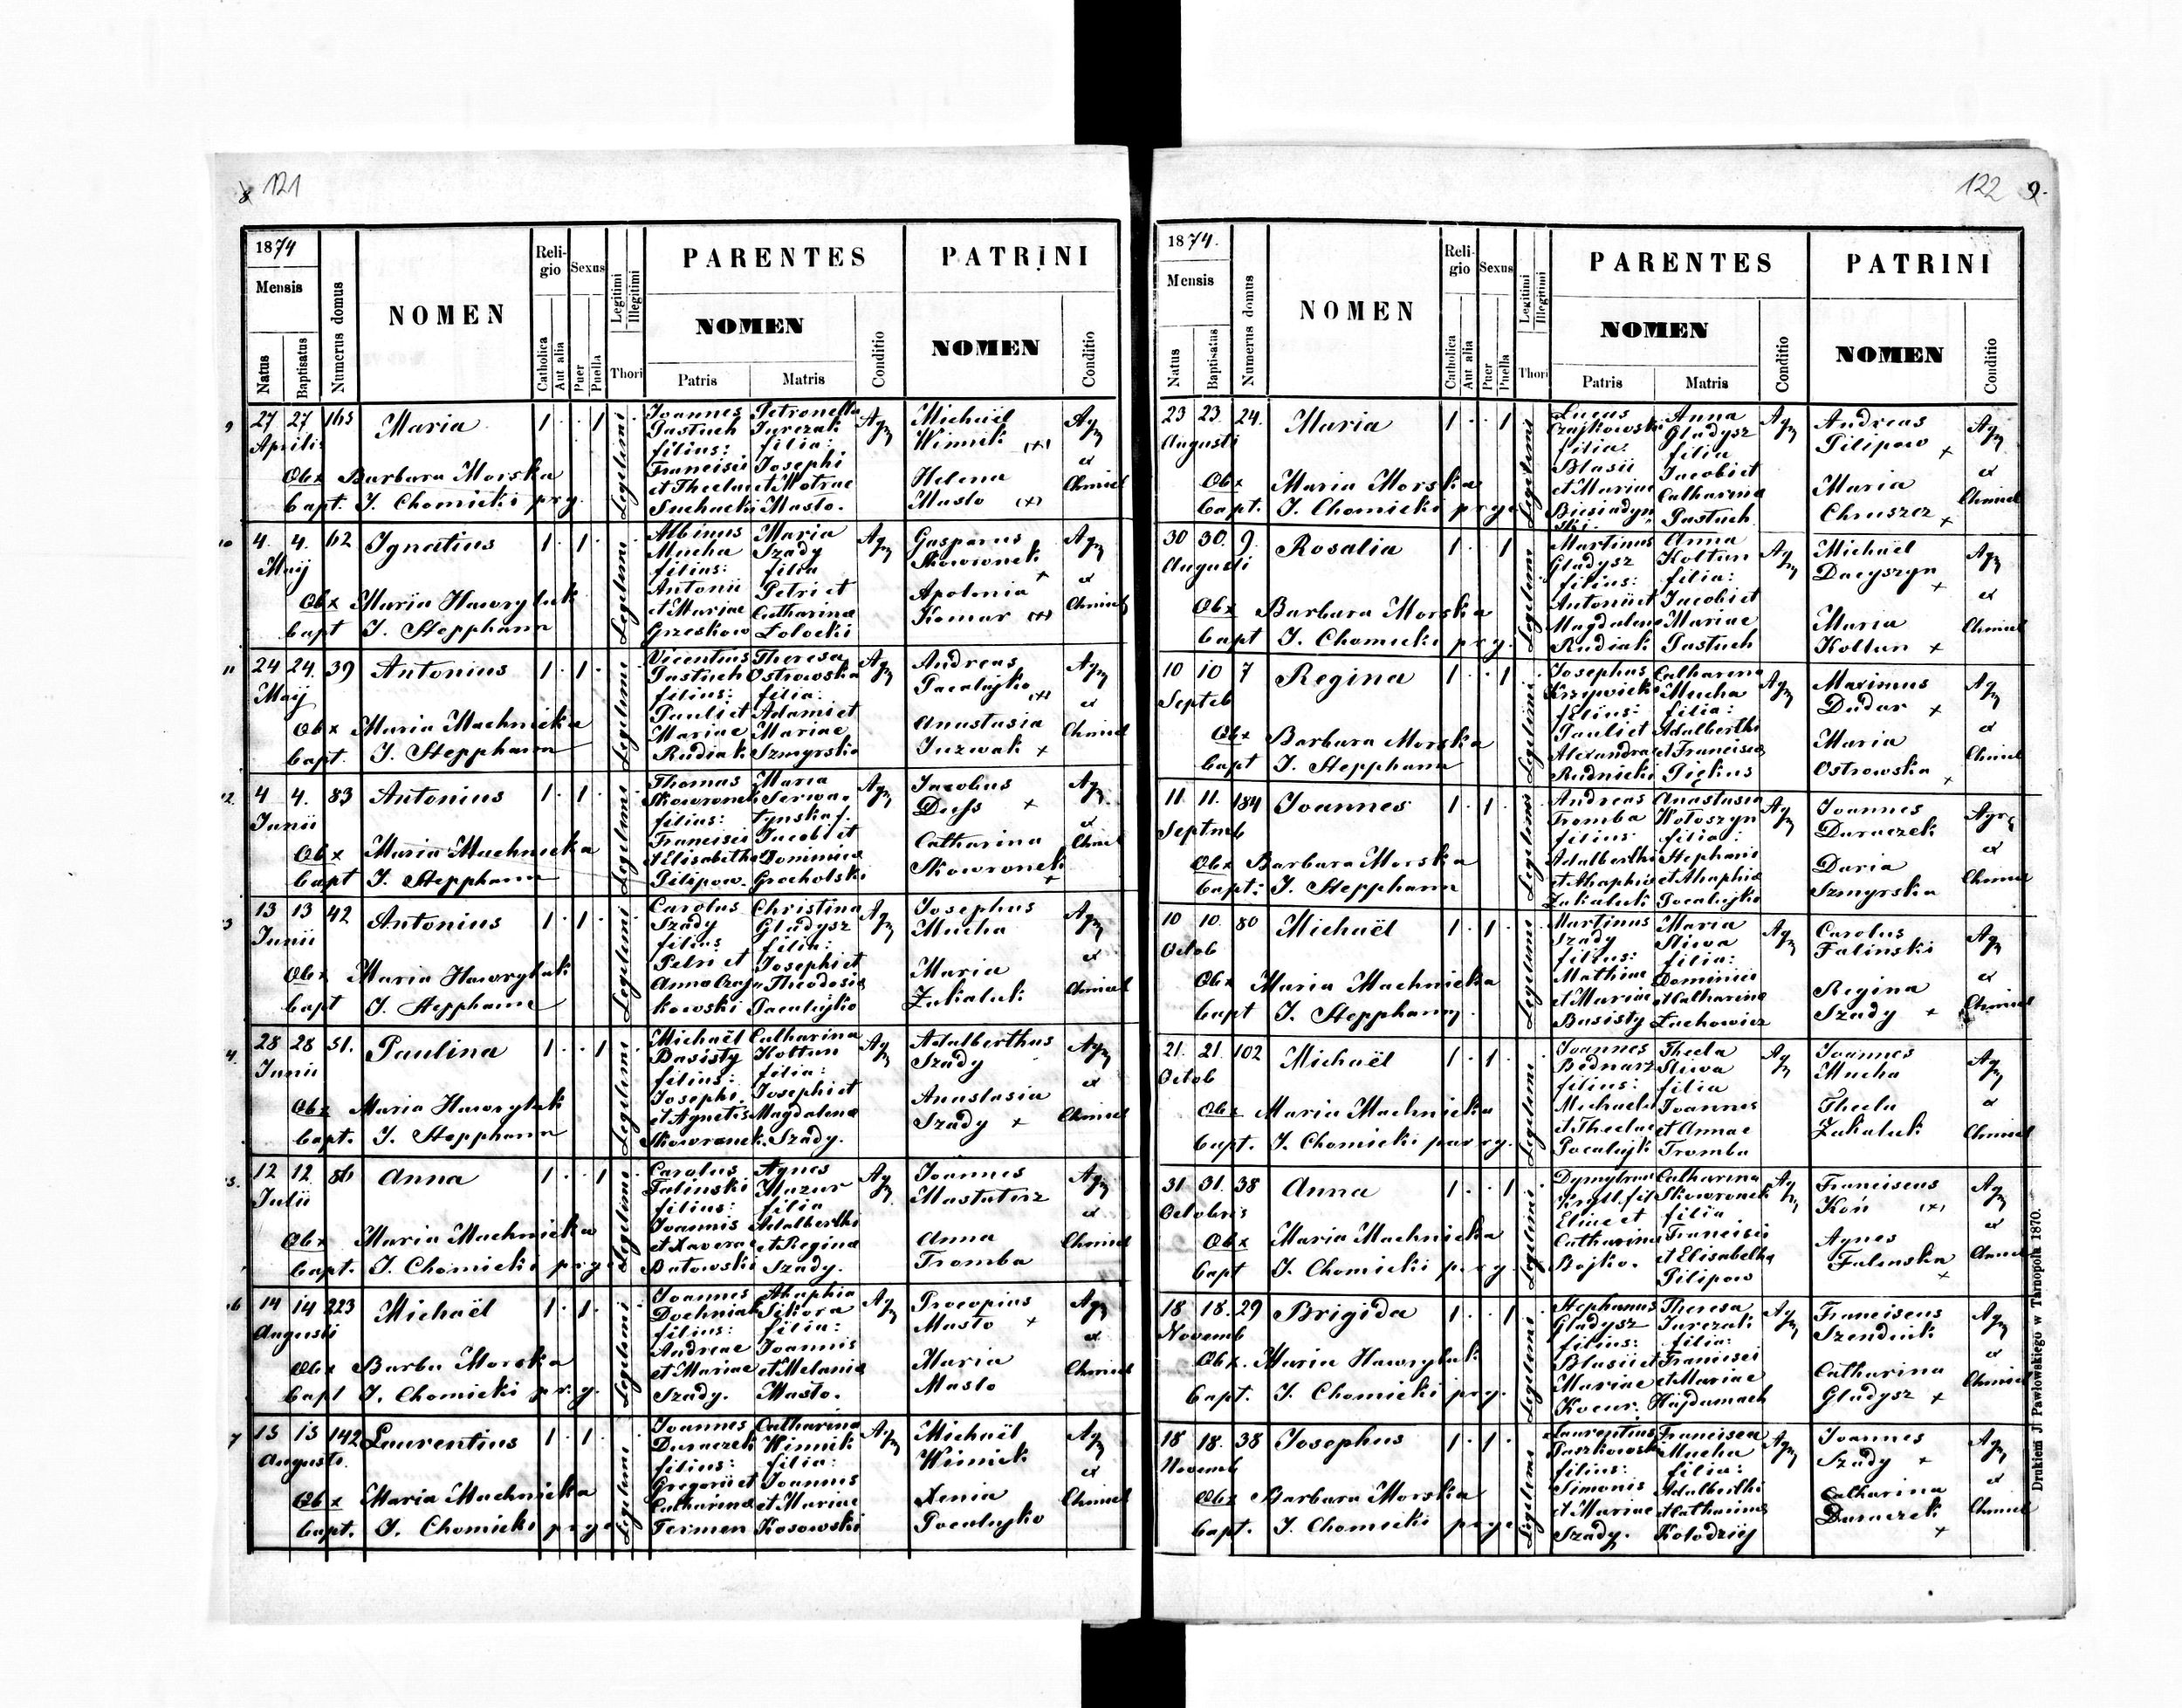 8 121
1874
Mensis
Natus
Baptisatus
Numerus domus
NOMEN
Religio
Catholica
Aut alia
Sexus
Puer
Puella
Legitimi
Illegitimi
Thori
PARENTES
NOMEN
Patris
Matris
Conditio
PATRINI
NOMEN
Conditio
9 27 27 165 Maria 1 . . 1 . Legitimi
Aprilis
Joannes Pastuch filius: Francisci et Theclae Suchacki
Petronella Jurczak filia: Josephi et Motrae Masło.
Agr
Michaël Winnik (+)
Helena Masło (+)
Agr et Chmiel
Obx Barbara Morska
bapt. J. Chomicki pr y.
10 4. 4. 62 Ignatius 1 . 1 . Legitimi
Maij
Albinus Mucha filius: Antonii et Mariae Grzeskow
Maria Szady filia Petri et Catharina
Agr
Gasparus Skowronek +
Apolonia Komar (+)
Agr et Chmiel
Obx Maria Hawryluk
bapt J. Stepphann
11 24 24. 39 Antonius 1 . 1 . Legitimi
Maij
Vicentius Pastuch filius: Pauli et Mariae Rudiak
Theresa Ostrowska filia: Adami et Mariae Szmyrska
Agr
Andreas Pacalujko (+)
Anastasia Juzwak +
Agr et Chmiel
Obx Maria Machnicka
bapt. J. Stepphann
12 4 4. 83 Antonius 1 . 1 . Legitimi
Junii
Thomas Skowronek filius: Francisci et Elisabetha Pilipow.
Maria f. Jacobi et Dominica Grocholski
Agr
Jacobus +
Catharina Skowronek +
Agr et Chmiel
Obx Maria Machnicka
bapt J. Stepphann
13 13 13 42 Antonius 1 . 1 . Legitimi
Junii
Carolus Szady filius Petri et Anna Czajkowski
Christina Gładysz filia: Josephi et Theodosia Pacalujko
Agr
Josephus Mucha
Maria Zukaluk
Agr et Chmiel
Obx Maria Hawryluk
bapt J. Stepphann
14. 28 28 51. Paulina 1 . . 1 . Legitimi
Junii
Michaël Basisty filius: Josephi et Agnetis Skowronek
Catharina Koltun filia: Josephi et Magdalena Szady.
Agr
Adalberthus Szady
Anastasia Szady +
Agr et Chmiel
Obx Maria Hawryluk
bapt. J. Stepphann
15. 12 12. 86 Anna 1 . . 1 . Legitimi
Julii
Carolus Falinski filius: Joannis et Xaverae Batowski
Agnes Mazur filia Adalberthi et Regina Szady.
Agr
Joannes
Anna Tromba
Agr et Chmiel
Obx Maria Machnicka
bapt. J. Chomicki pr y
16 14 14 223 Michaël 1 . 1 . Legitimi
Augusti
Joannes Dochniak filius: Andreae et Mariae Szady.
Ahaphia Sikora filia: Joannis et Melania Masło.
Agr
Procopius Masło +
Maria Masło
Agr et Chmiel
Obx Barba Morska
bapt J. Chomicki pr. y.
17 15 15 142 Laurentius 1 . 1 . Legitimi
Augusti
Joannes Duraczek filius: Gregorii et Catharina Fermen
Catharina Winnik filia: Joannis et Mariae Kosowski
Agr
Michaël Winnick
Xenia Pacalujko
Agr et Chmiel
Obx Maria Machnicka
bapt. J. Chomicki pr y
122 9.
1874.
Mensis
Natus
Baptisatus
Numerus domus
NOMEN
Religio
Catholica
Aut alia
Sexus
Puer
Puella
Legitimi
Illegitimi
Thori
PARENTES
NOMEN
Patris
Matris
Conditio
PATRINI
NOMEN
Conditio
23 23. 24. Maria 1 . . 1 . Legitimi
Augusti
Lucas Czajkowski filius Blasii et Mariae Biesiadynski.
Anna Gładysz filia Jacobi et Catharina Pastuch
Agr
Andreas Pilipow +
Maria Chruszcz +
Agr et Chmiel
Obx Maria Morska
bapt. J. Chomicki pr y
30 30. 9. Rosalia 1 . . 1 . Legitimi
Augusti
Martinus Gładysz filius: Antonii et Magdalena Rudiak
Anna Koltun filia: Jacobi et Mariae Pastuch
Agr
Michaël Dacyszyn +
Maria Koltun +
Agr et Chmiel
Obx Barbara Morska
bapt J. Chomicki pr y.
10 10 7 Regina 1 . . 1 . Legitimi
Septeb
Josephus Krzywicki filius: Pauli et Alexandra Rudnicki
Catharina Mucha filia: Adalberthi et Francisca Piękus
Agr
Maximus Dudar +
Maria Ostrowska +
Agr et Chmiel
Obx Barbara Morska
bapt J. Stepphann
11. 11. 184 Joannes 1 . 1 . Legitimi
Septmb
Andreas Tromba filius: Adalberthi et Ahaphia Zukaluk
Anastasia Wołoszyn filia: Stephani et Ahaphia Pacalujko
Agr
Joannes Duraczek
Daria Szmyrska
Agr et Chmiel
Obx Barbara Morska
bapt: J. Stepphann
10 10. 80 Michaël 1 . 1 . Legitimi
Octob
Martinus Szady filius: Mathiae et Mariae Basisty
Maria Sliwa filia: Dominici et Catharina Łachowicz
Agr
Carolus Falinski
Regina Szady +
Agr et Chmiel
Obx Maria Machnicka
bapt J. Stepphann.
21. 21. 102 Michaël 1 . 1 . Legitimi
Octob
Joannes Bednarz filius: Michaelis et Theclae Pacalujk
Thecla Sliwa filia Joannes et Annae Tromba
Agr
Joannes Mucha
Thecla Zukaluk
Agr et Chmiel
Obx Maria Machnicka
bapt. J. Chomicki par ry.
31 31. 38 Anna 1 . . 1 . Legitimi
Octobris
Dymytrus fil Eliae et Catharina Bojko.
Catharina Skowronek filia Francisci et Elisabetha Pilipow
Agr
Franciscus Koń (+)
Agnes Falinska +
Agr et Chmiel
Obx Maria Machnicka
bapt J. Chomicki pr y.
18 18. 29 Brigida 1 . . 1 . Legitimi
Novemb
Stephanus Gładysz filius: Blasii et Mariae Kocur.
Theresa Jurczak filia: Francisci et Mariae Hajdamach
Agr
Franciscus Szendiuk
Catharina Gładysz +
Agr et Chmiel
Obx. Maria Hawryluk
bapt. J. Chomicki pr y.
18 18. 38 Josephus 1 . 1 . Legitimi
Novemb
Laurentius filius: Simonis et Mariae Szady.
Francisca Mucha filia: Adalberthi et Catharina Kołodziej
Agr
Joannes Szady +
Catharina Duraczek +
Agr et Chmiel
Obx Barbara Morska
bapt. J. Chomicki pr y
Drukiem J. Pawłowskiego w Tarnopolu 1870.